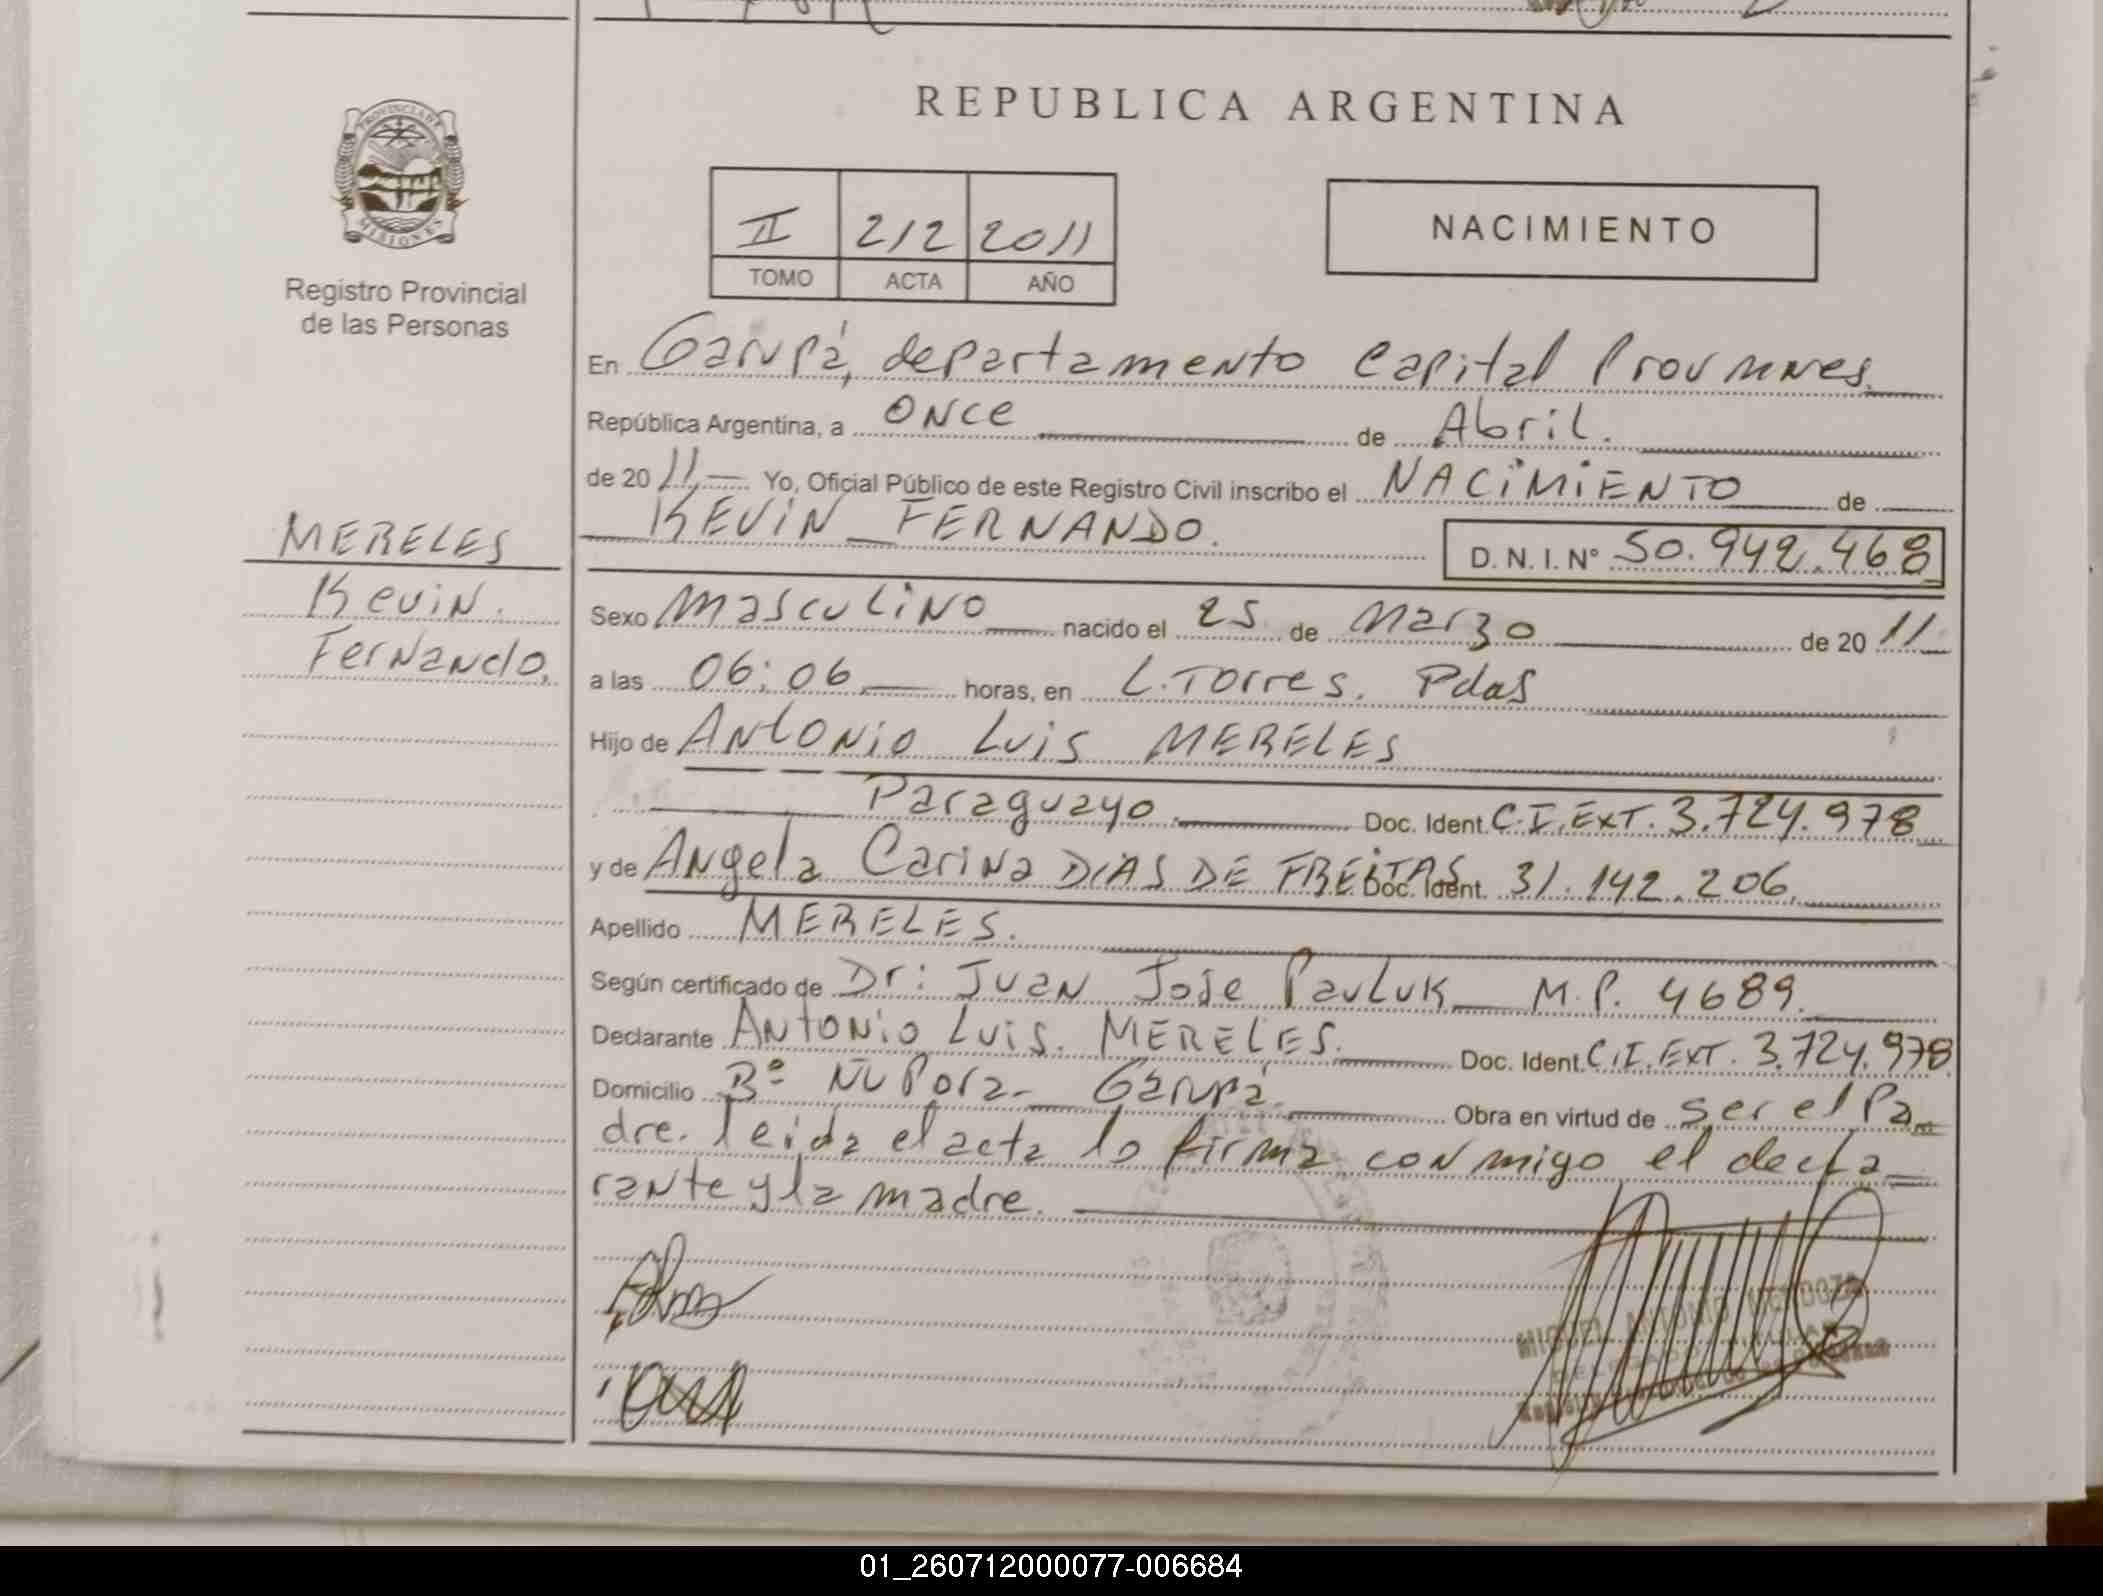 REPUBLICA ARGENTINA
PROVINCIA DE
MISIONES
Registro Provincial
de las Personas
II 212 2011
TOMO ACTA AÑO
NACIMIENTO
En Garupá, departamento Capital Prov
República Argentina, a once de Abril.
de 2011 Yo, Oficial Público de este Registro Civil inscribo el NACIMIENTO de
KEVIN FERNANDO.
D. N. I. Nº 50.942.468
MERELES
Kevin.
Fernando,
Sexo Masculino nacido el 25 de Marzo de 2011
a las 06:06 horas, en L. Torres. Pdas
Hijo de Antonio Luis MERELES
Paraguayo Doc. Ident. C.I. EXT. 3.724.978
y de Angela Carina DIAS DE FREITAS Doc. Ident. 31.142.206.
Apellido MERELES.
Según certificado de Dr: Juan Jose Pauluk M.P. 4689.
Declarante Antonio Luis. MERELES. Doc. Ident. C.I. EXT. 3.724.978
Domicilio Bº Ñu Pora- Garupá. Obra en virtud de ser el Pa
dre. leida el acta lo firma conmigo el decla
rante y la madre.
MIGUEL ANTONIO MENDOZA
01_260712000077-006684